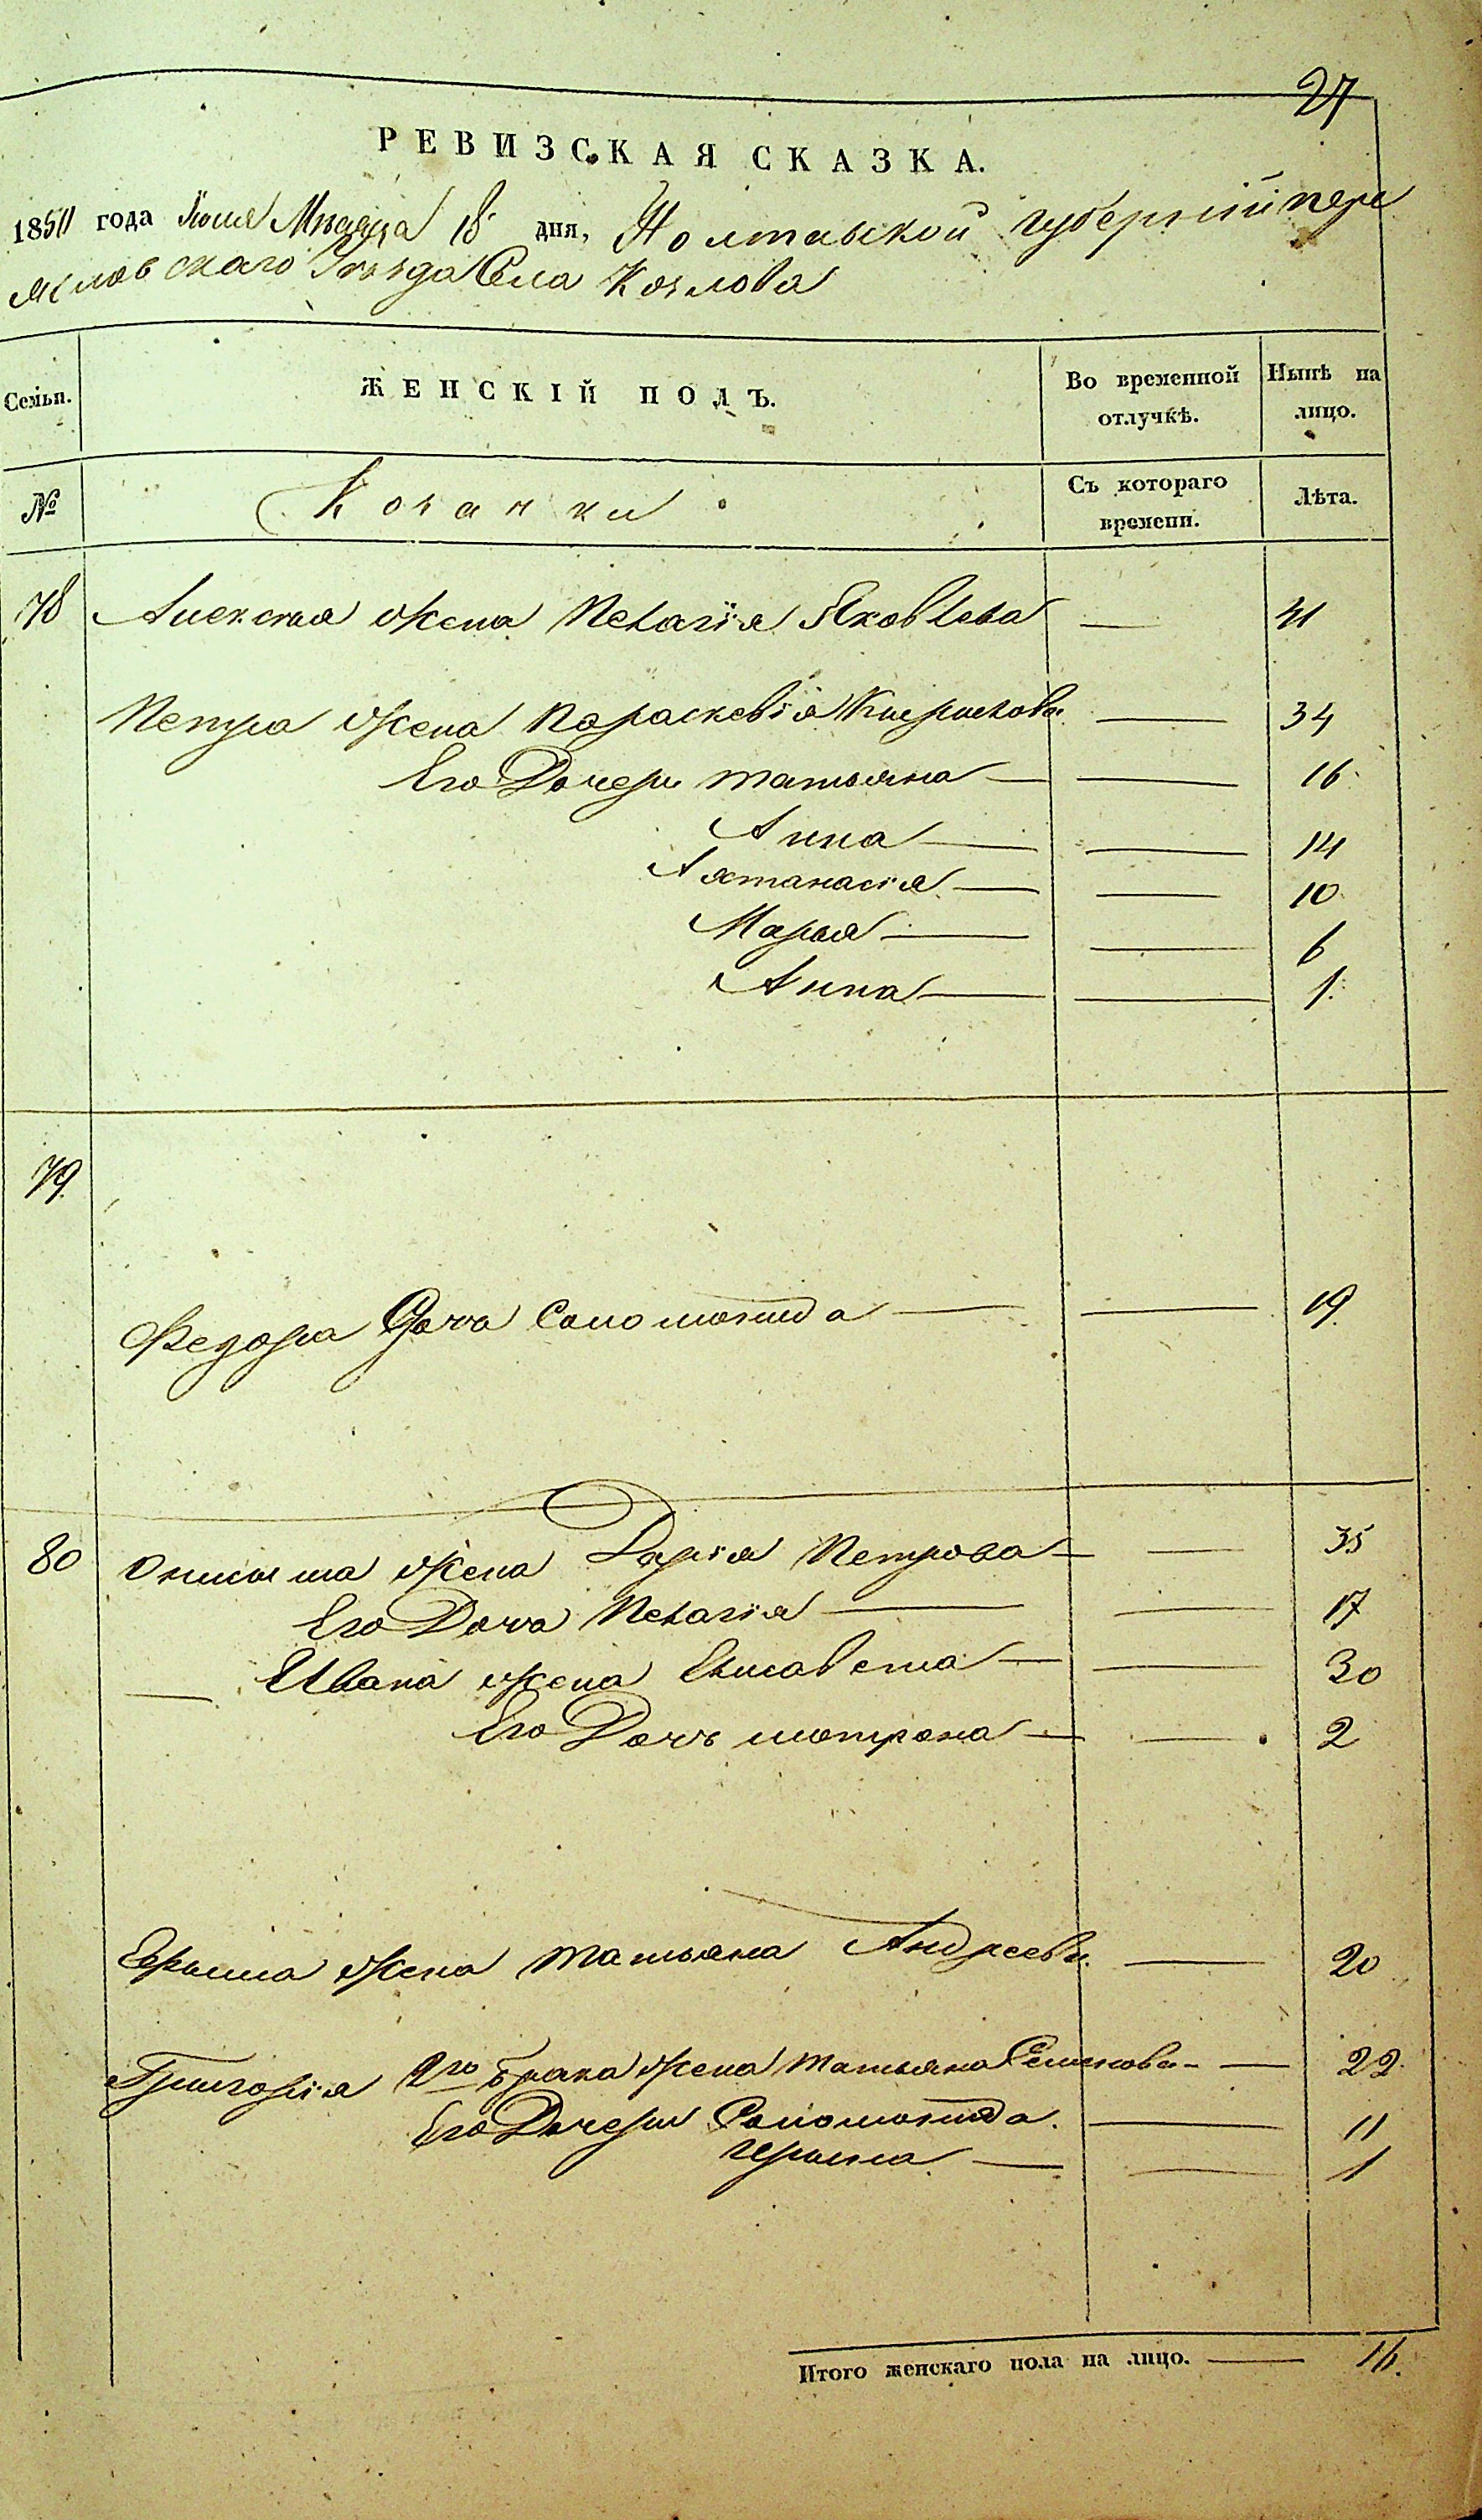 27
РЕВИЗСКАЯ СКАЗКА.
1850 года Іюля Мѣсяца 18 дня, Полтавской губерніи пере
яславскаго Уѣзда Села Козлова
Семьи. ЖЕНСКІЙ ПОЛЪ. Во временной отлучкѣ. Нынѣ на лицо.
№ Козачки Съ котораго времени. Лѣта.
78 Алексея жена Пелагія Яковлева — 41
Петра жена Параскевія Кирилова — 34
Его Дочери татьяна — — 16
Анна — — 14
Анастасія — — 10
Марья — — 6
Анна — — 1
79
Федора Доча Соломонида — — 19
80 Онисима жена Дарія Петрова — — 35
Его Доча Пелагія — — 17
— Ивана жена Елисавета — — 30
Его Дочь мотрона — — 2
Ефима жена татьяна Андреева — 20
Григорія 2го брака жена татьяна Семенова — — 22
Его Дочери Соломонида — 11
— — 1
Итого женскаго пола на лицо. — 16.